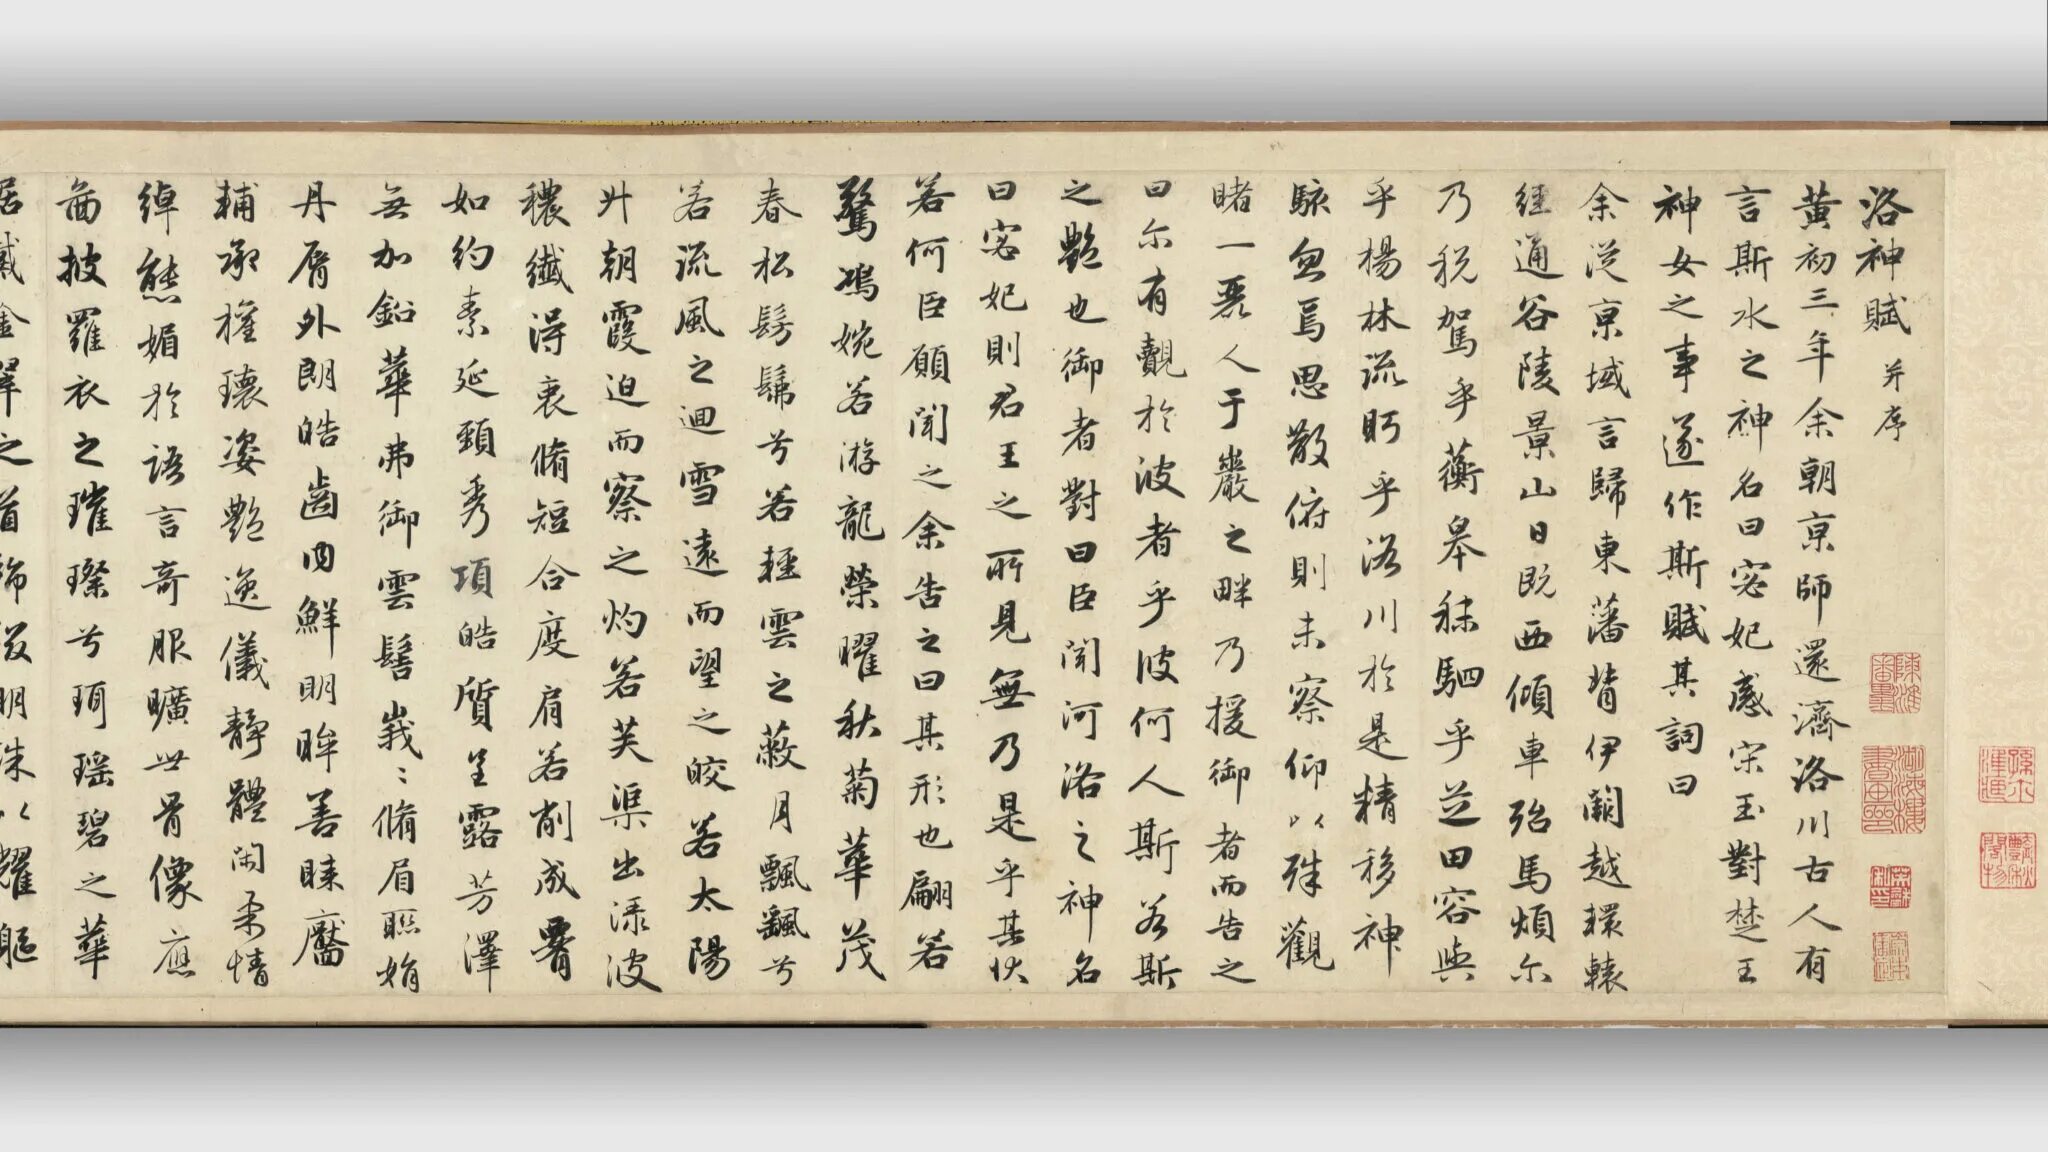 洛神賦 并序
黃初三年余朝京師還濟洛川古人有
言斯水之神名曰宓妃感宋玉對楚王
神女之事遂作斯賦其詞曰
余從京域言歸東藩背伊闕越轘轅
經通谷陵景山日既西傾車殆馬煩尓
乃稅駕乎蘅皋秣駟乎芝田容與
乎楊林流眄乎洛川於是精移神
駭忽焉思散俯則未察仰以殊觀
睹一麗人于巖之畔乃援御者而告之
曰尓有覿於波者乎彼何人斯若斯
之艷也御者對曰臣聞河洛之神名
曰宓妃則君王之所見無乃是乎其狀
若何臣願聞之余告之曰其形也翩若
驚鴻婉若游龍榮曜秋菊華茂
春松髣髴兮若輕雲之蔽月飄颻兮
若流風之迴雪遠而望之皎若太陽
升朝霞迫而察之灼若芙渠出淥波
穠纖得衷脩短合度肩若削成腰
如約素延頸秀項皓質呈露芳澤
無加鉛華弗御雲髻峩〻脩眉聯娟
丹脣外朗皓齒內鮮明眸善睞靨
輔承權瓌姿艷逸儀靜體閑柔情
綽態媚於語言奇服曠世骨像應
啚披羅衣之璀璨兮珥瑶碧之華